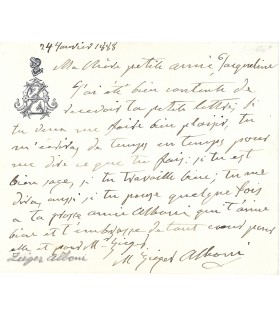 24 Janvier 1888
Ma chère petite amie Jacqueline
J'ai été bien contente de
recevoir ta petite lettre, si
tu veux me faire bien plaisir, tu
m'écriras de temps en temps pour
me dire ce que tu fais; si tu est
bien sage, si tu travaille bien; tu me
diras aussi, si tu pense quelque fois
a ta grosse amie Alboni qui t'aime
bien et t'embrasse de tout cœur pour
elle et pour Mr Zieger.
M Zieger Alboni
Zieger Alboni